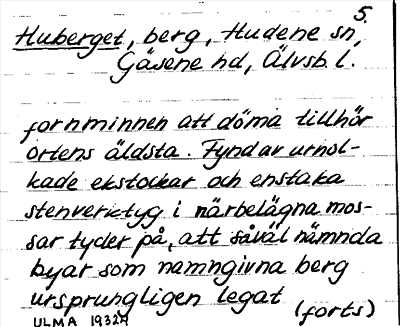 5.
Huberget, berg, Hudene sn,
Gäsene hd, Älvsb. l.
fornminnen att döma tillhör
ortens äldsta. Fynd av urhol-
kade ekstockar och enstaka
stenverktyg i närbelägna mos-
sar tyder på, att såväl nämnda
byar som namngivna berg
ursprungligen legat (forts)
ULMA 19329